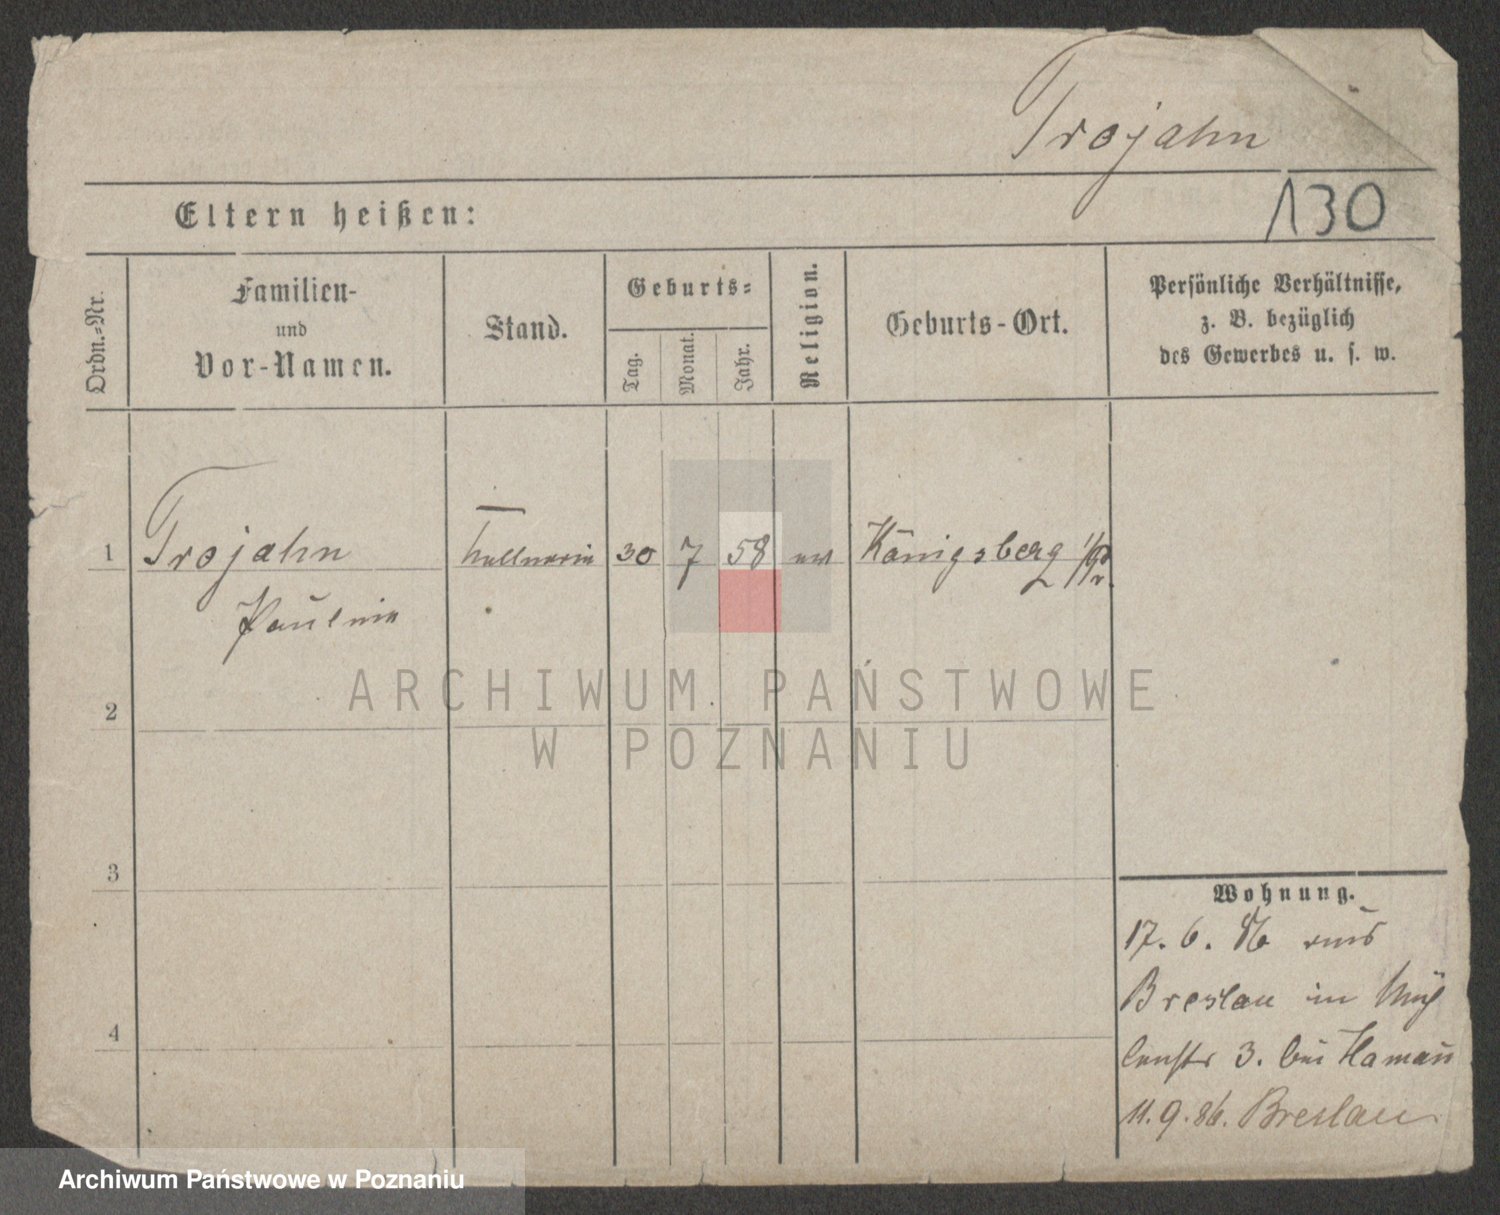 Trojahn
130
Eltern heißen:
Ordn.-Nr.
Familien-
und
Vor-Namen.
Stand.
Geburts-
Tag.
Monat.
Jahr.
Religion.
Geburts-Ort.
Persönliche Verhältnisse,
z. B. bezüglich
des Gewerbes u. s. w.
1
Trojahn
Kellnerin
30
7
58
ev
Königsberg i/Pr.
Pauline
ARCHIWUM PAŃSTWOWE
W POZNANIU
2
3
4
Wohnung.
17. 6. 86 aus
Breslau in Müh
lenstr 3. bei Haman
11. 9. 86. Breslau.
Archiwum Państwowe w Poznaniu